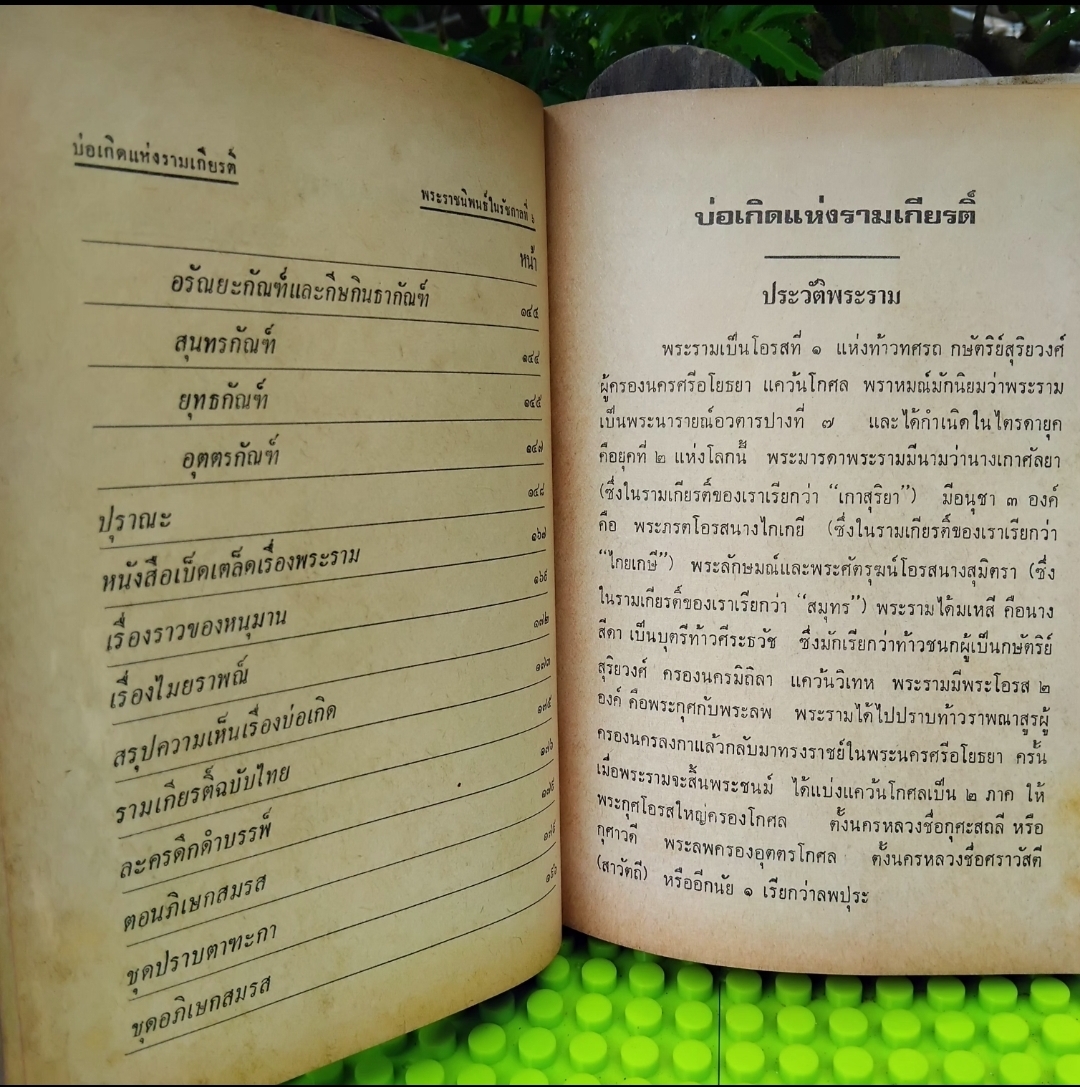 บ่อเกิดแห่งรามเกียรติ์
พระราชนิพนธ์ในรัชกาลที่ ๖
หน้า
อรัณยะกัณฑ์และกีษกินธากัณฑ์
สุนทรกัณฑ์
ยุทธกัณฑ์
อุตตรกัณฑ์
ปุราณะ
หนังสือเบ็ดเตล็ดเรื่องพระราม
เรื่องราวของหนุมาน
เรื่องไมยราพณ์
สรุปความเห็นเรื่องบ่อเกิด
รามเกียรติ์ฉบับไทย
ละครดึกดำบรรพ์
ตอนภิเษกสมรส
ชุดปราบตาฑะกา
ชุดอภิเษกสมรส
บ่อเกิดแห่งรามเกียรติ์
ประวัติพระราม
พระรามเป็นโอรสที่ ๑ แห่งท้าวทศรถ กษัตริย์สุริยวงศ์
ผู้ครองนครศรีอโยธยา แคว้นโกศล พราหมณ์มักนิยมว่าพระราม
เป็นพระนารายณ์อวตารปางที่ ๗ และได้กำเนิดในไตรดายุค
คือยุคที่ ๒ แห่งโลกนี้ พระมารดาพระรามมีนามว่านางเกาศัลยา
(ซึ่งในรามเกียรติ์ของเราเรียกว่า “เกาสุริยา”) มีอนุชา ๓ องค์
คือ พระภรตโอรสนางไกเกยี (ซึ่งในรามเกียรติ์ของเราเรียกว่า
“ไกยเกษี”) พระลักษมณ์และพระศัตรุฆน์โอรสนางสุมิตรา (ซึ่ง
ในรามเกียรติ์ของเราเรียกว่า “สมุทร”) พระรามได้มเหสี คือนาง
สีดา เป็นบุตรีท้าวศีระธวัช ซึ่งมักเรียกว่าท้าวชนกผู้เป็นกษัตริย์
สุริยวงศ์ ครองนครมิถิลา แคว้นวิเทห พระรามมีพระโอรส ๒
องค์ คือพระกุศกับพระลพ พระรามได้ไปปราบท้าวราพณาสูรผู้
ครองนครลงกาแล้วกลับมาทรงราชย์ในพระนครศรีอโยธยา ครั้น
เมื่อพระรามจะสิ้นพระชนม์ ได้แบ่งแคว้นโกศลเป็น ๒ ภาค ให้
พระกุศโอรสใหญ่ครองโกศล ตั้งนครหลวงชื่อกุศะสถลี หรือ
กุศาวดี พระลพครองอุตตรโกศล ตั้งนครหลวงชื่อศราวัสตี
(สาวัตถี) หรืออีกนัย ๑ เรียกว่าลพปุระ